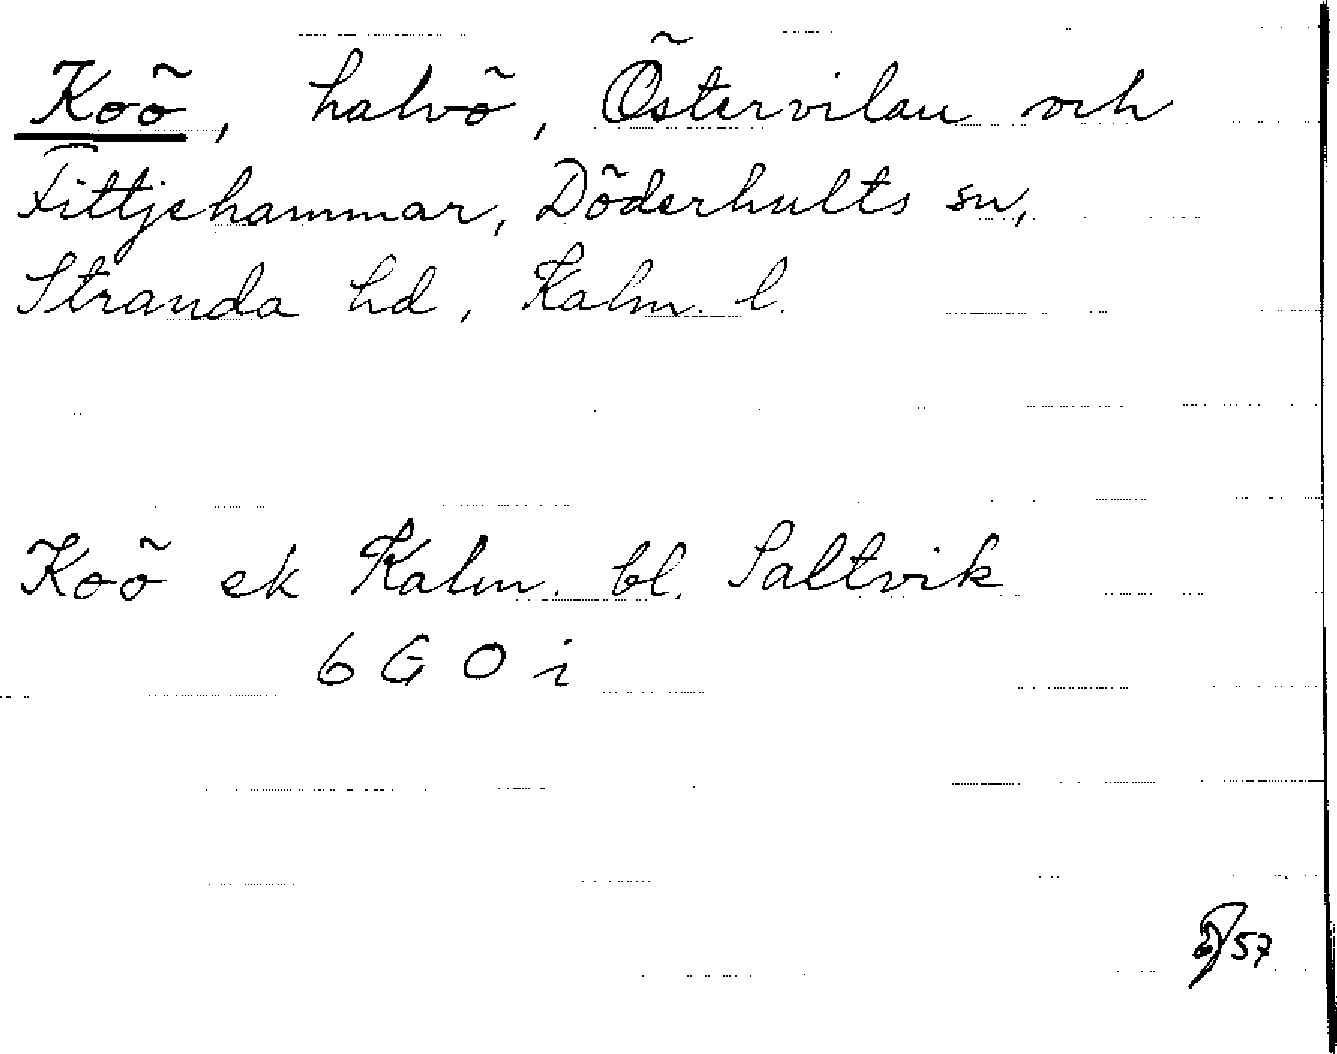 Koö, halvö, Östervilan och
Fittjehammar, Döderhults sn,
Stranda hd, Kalm. l.
Koö ek Kalm. bl. Saltvik
6 G 0 i
57